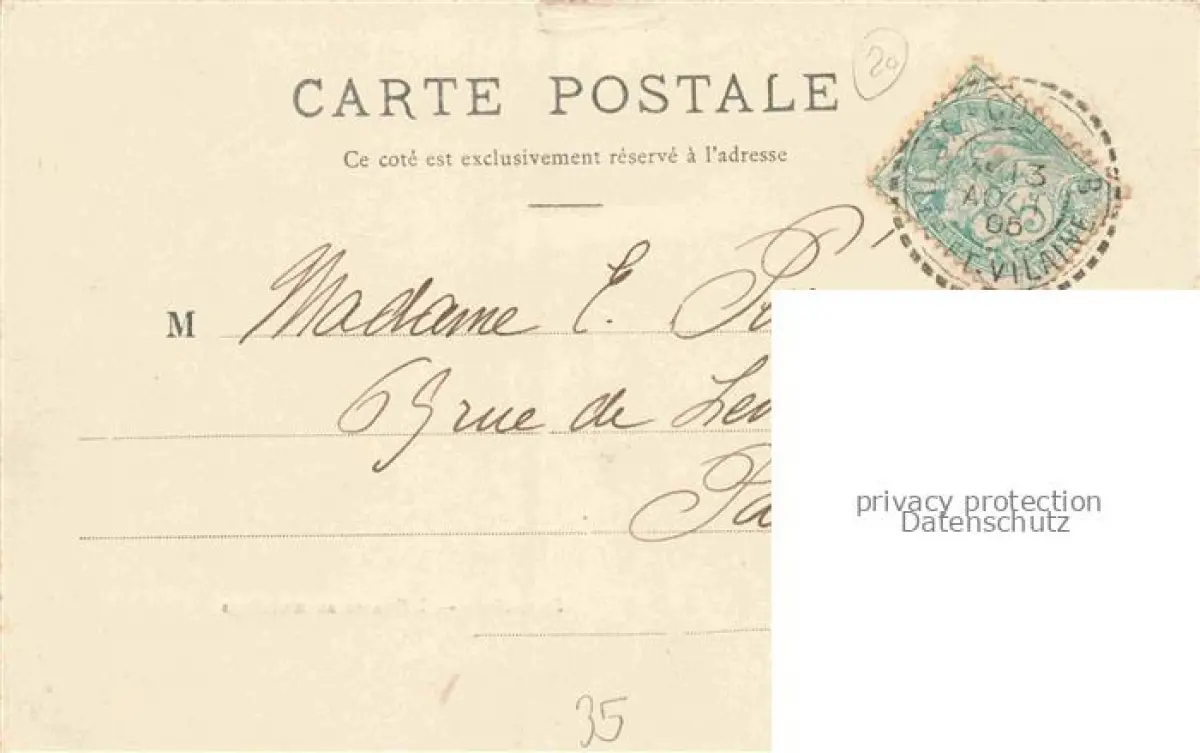 CARTE POSTALE
20
Ce coté est exclusivement réservé à l'adresse
13
AOUT
05
ET-VILAINE
M Madame E.
69 rue de
privacy protection
Datenschutz
35